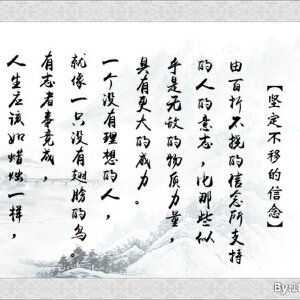 【坚定不移的信念】
由百折不挠的信念所支持
的人的意志，比那些似
乎是无敌的物质力量，
具有更大的威力。
一个没有理想的人，
就像一只没有翅膀的鸟。
有志者事竟成，
人生应该如蜡烛一样，
By:1